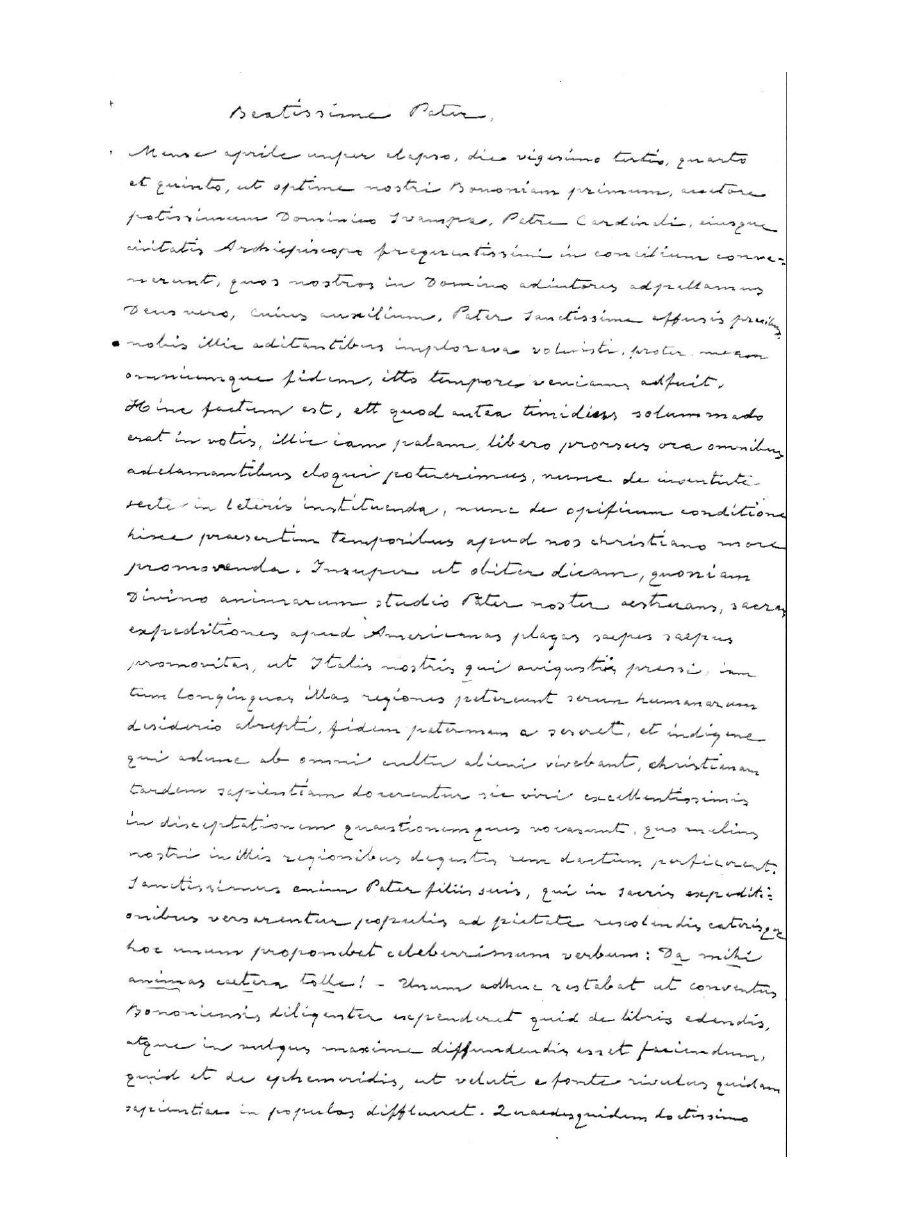 Beatissime Pater,
Mense aprile nuper elapso, die vigesimo tertio, quarto
et quinto, ut optime nostri Bononiam primum, auctore
potissimum Dominico Svampa, Patre Cardinali, eiusque
civitatis Archiepiscopo frequentissimi in concilium conve=
nerunt, quos nostros in Domino adiutores adpellamus
Deus vero, cuius auxilium, Pater Sanctissime effusis precibus
nobis illic aditantibus implorare voluisti, praeter meam
omniumque fidem, illo tempore veniam adfuit.
Hinc factum est, ett quod antea timidius solummodo
erat in votis, illic iam palam, libero prorsus ora omnibus
adclamantibus eloqui potuerimus, nunc de iuventute
recte in leteris instituenda, nunc de opificum conditione
hisce praesertim temporibus apud nos christiano more
promovenda. Insuper ut obiter dicam, quoniam
Divino animarum studio Pater noster aestuans, sacras
expeditiones apud Americanas plagas saepes saepius
promovitas, ut Italis nostris qui avigustiis pressi, iam
tum longinquas illas regiones peterent rerum humanarum
desiderio abrepti, fidem paternam a sereret, et indigene
qui adunc ab omni cultu alieni vivebant, christianam
tandem sapientiam docerentur sic viri excellentissimis
in disceptationem quaestionemques vocarunt, quo melius
nostri in illis regionibus degentes rem dactum perficerent.
Sanctissimus enim Pater filiis suis, qui in sacris expediti=
onibus versarentur populis ad pietate rescolendis caterisque
hoc unum proponebet celeberrimum verbum: Da mihi
animas caetera tolle! - Unum adhuc restabat ut conventus
Bononiensis diligenter expenderet quid de libris edendis,
atque in vulgus maxime diffundendis esset faciendum,
quid et de ephemeridis, ut veluti e fonte rivulus quidam
sapientiae in populos difflueret. Quaedesquidem doctissimo